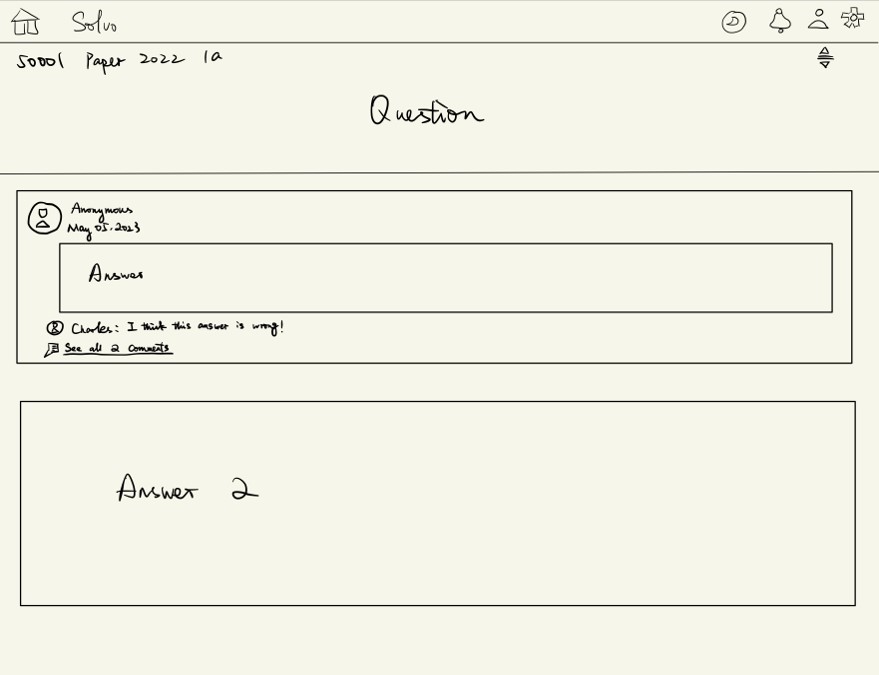 Solvo
50001 Paper 2022 1a
Question
Anonymous
May 05.2023
Answer
Charles: I think this answer is wrong!
See all 2 comments
Answer 2